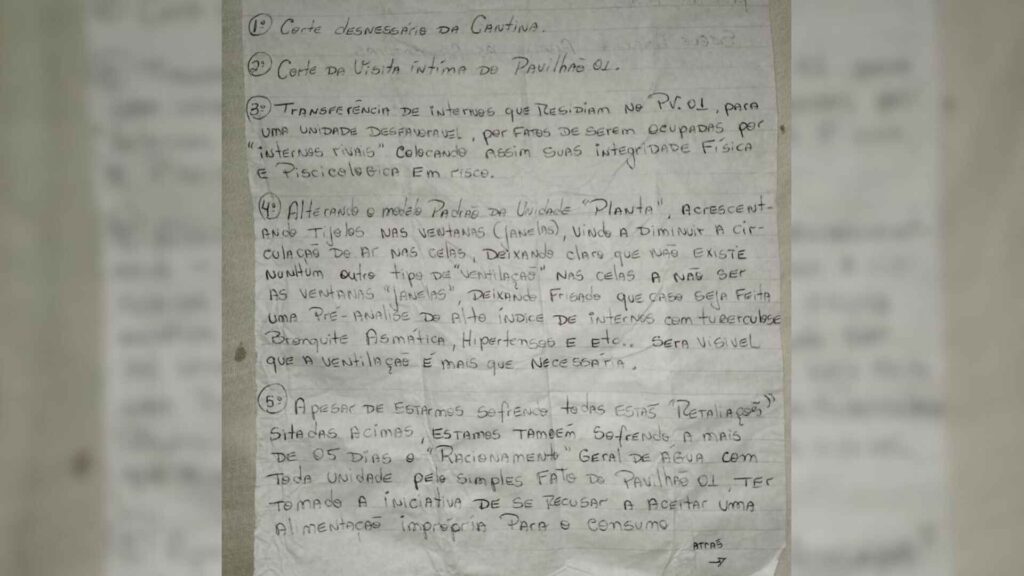 1º Corte desnessário da Cantina.
2º Corte da Visita íntima do Pavilhão 01.
3º Transferência de internos que residiam no PV.01, para
uma unidade desfavoravel, por fatos de serem ocupadas por
"internos rivais" colocando assim suas integridade física
e Piscicologica em risco.
4º Alterando o modelo Padrão da Unidade "Planta", acrescent-
ando tijolos nas ventanas (janelas), vindo a diminuir a cir-
culação do ar nas celas, deixando claro que não existe
nunhum outro tipo de "ventilação" nas celas a não ser
as ventanas "janelas", deixando frisado que caso seja feita
uma pré-analise do alto índice de internos com turerculose
Bronquite Asmática, Hipertensos e etc.. sera visivel
que a ventilação é mais que necessária.
5º Apesar de estarmos sofrendo todas estas "Retaliação"
sitadas acimas, estamos também sofrendo a mais
de 05 dias o "Racionamento" Geral de agua com
toda unidade pelo simples fato do Pavilhão 01, ter
tomado a iniciativa de se recusar a aceitar uma
alimentação impropria para o consumo
atras